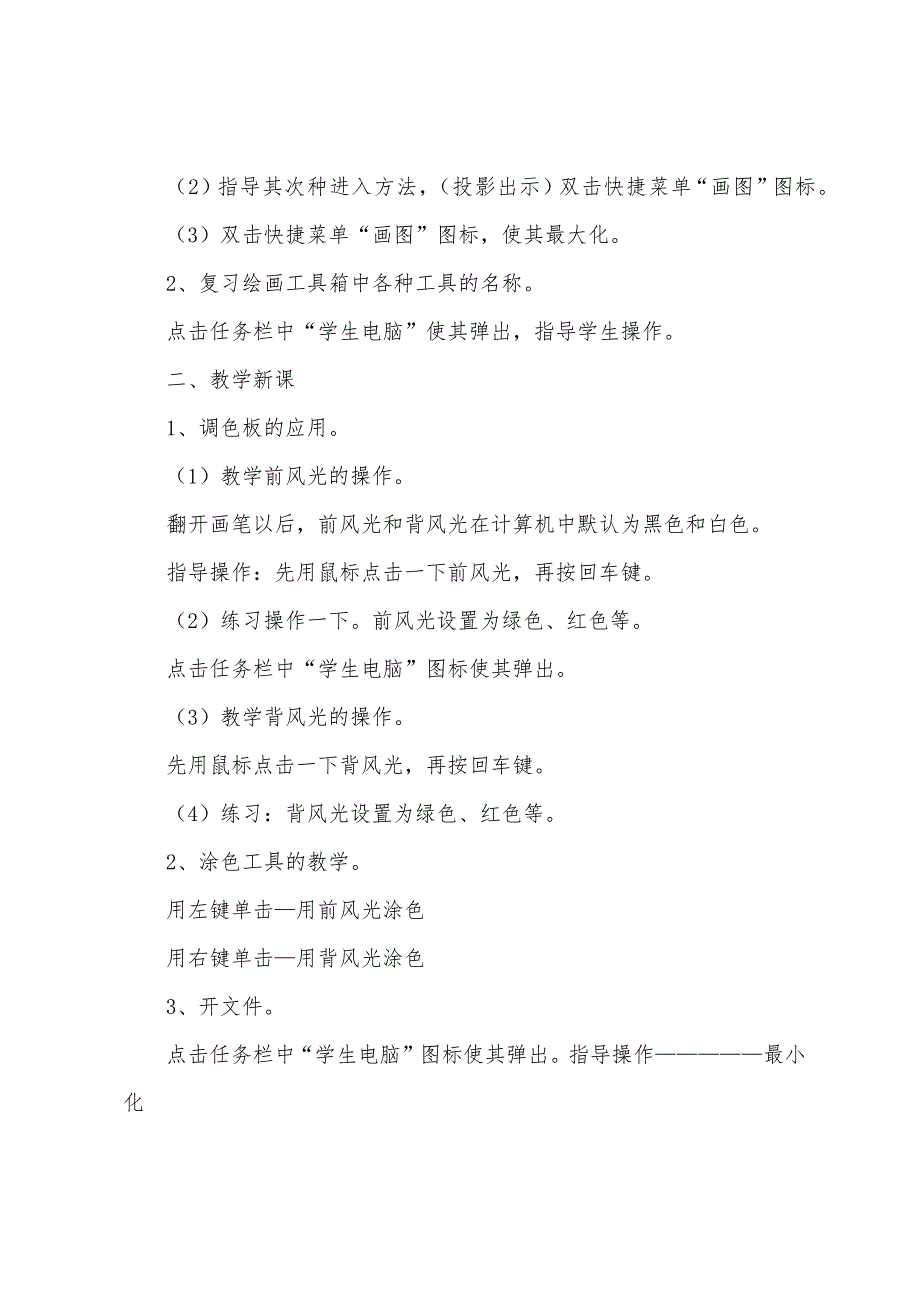 （2）指导其次种进入方法，（投影出示）双击快捷菜单“画图”图标。
（3）双击快捷菜单“画图”图标，使其最大化。
2、复习绘画工具箱中各种工具的名称。
点击任务栏中“学生电脑”使其弹出，指导学生操作。
二、教学新课
1、调色板的应用。
（1）教学前风光的操作。
翻开画笔以后，前风光和背风光在计算机中默认为黑色和白色。
指导操作：先用鼠标点击一下前风光，再按回车键。
（2）练习操作一下。前风光设置为绿色、红色等。
点击任务栏中“学生电脑”图标使其弹出。
（3）教学背风光的操作。
先用鼠标点击一下背风光，再按回车键。
（4）练习：背风光设置为绿色、红色等。
2、涂色工具的教学。
用左键单击—用前风光涂色
用右键单击—用背风光涂色
3、开文件。
点击任务栏中“学生电脑”图标使其弹出。指导操作—————最小
化